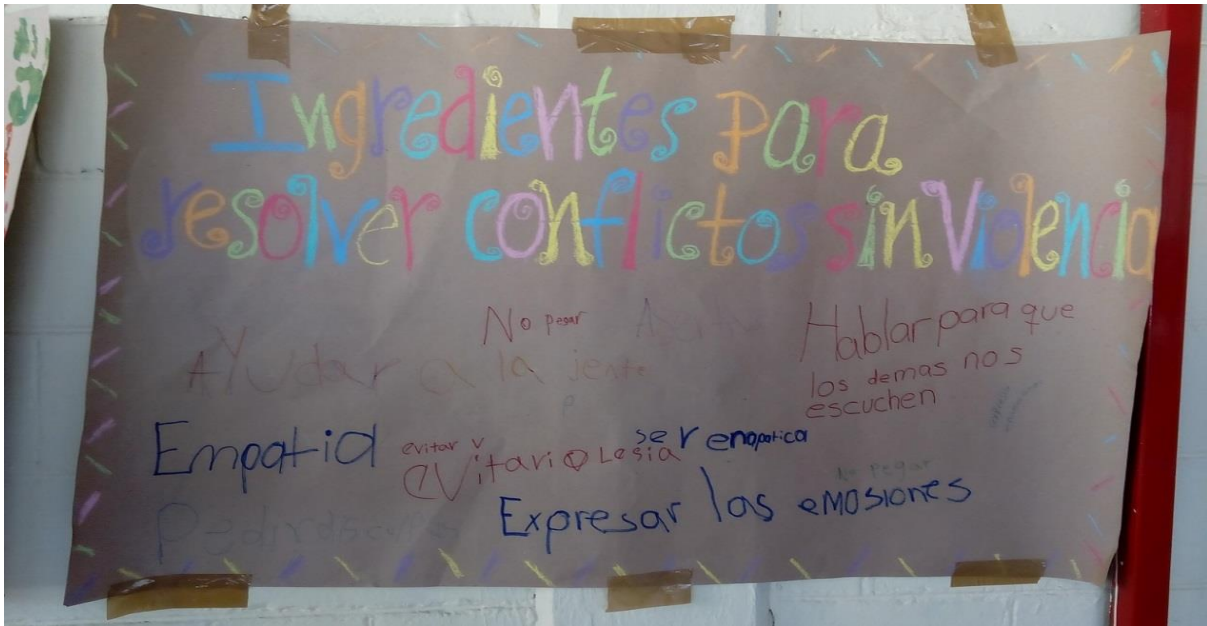 Ingredientes para
resolver conflictos sin violencia
No pegar
Hablar para que
los demas nos
escuchen
AYudar a la jente
Empatia
evitar v
evitar violesia
ser enopatica
No pegar
Expresar las emosiones